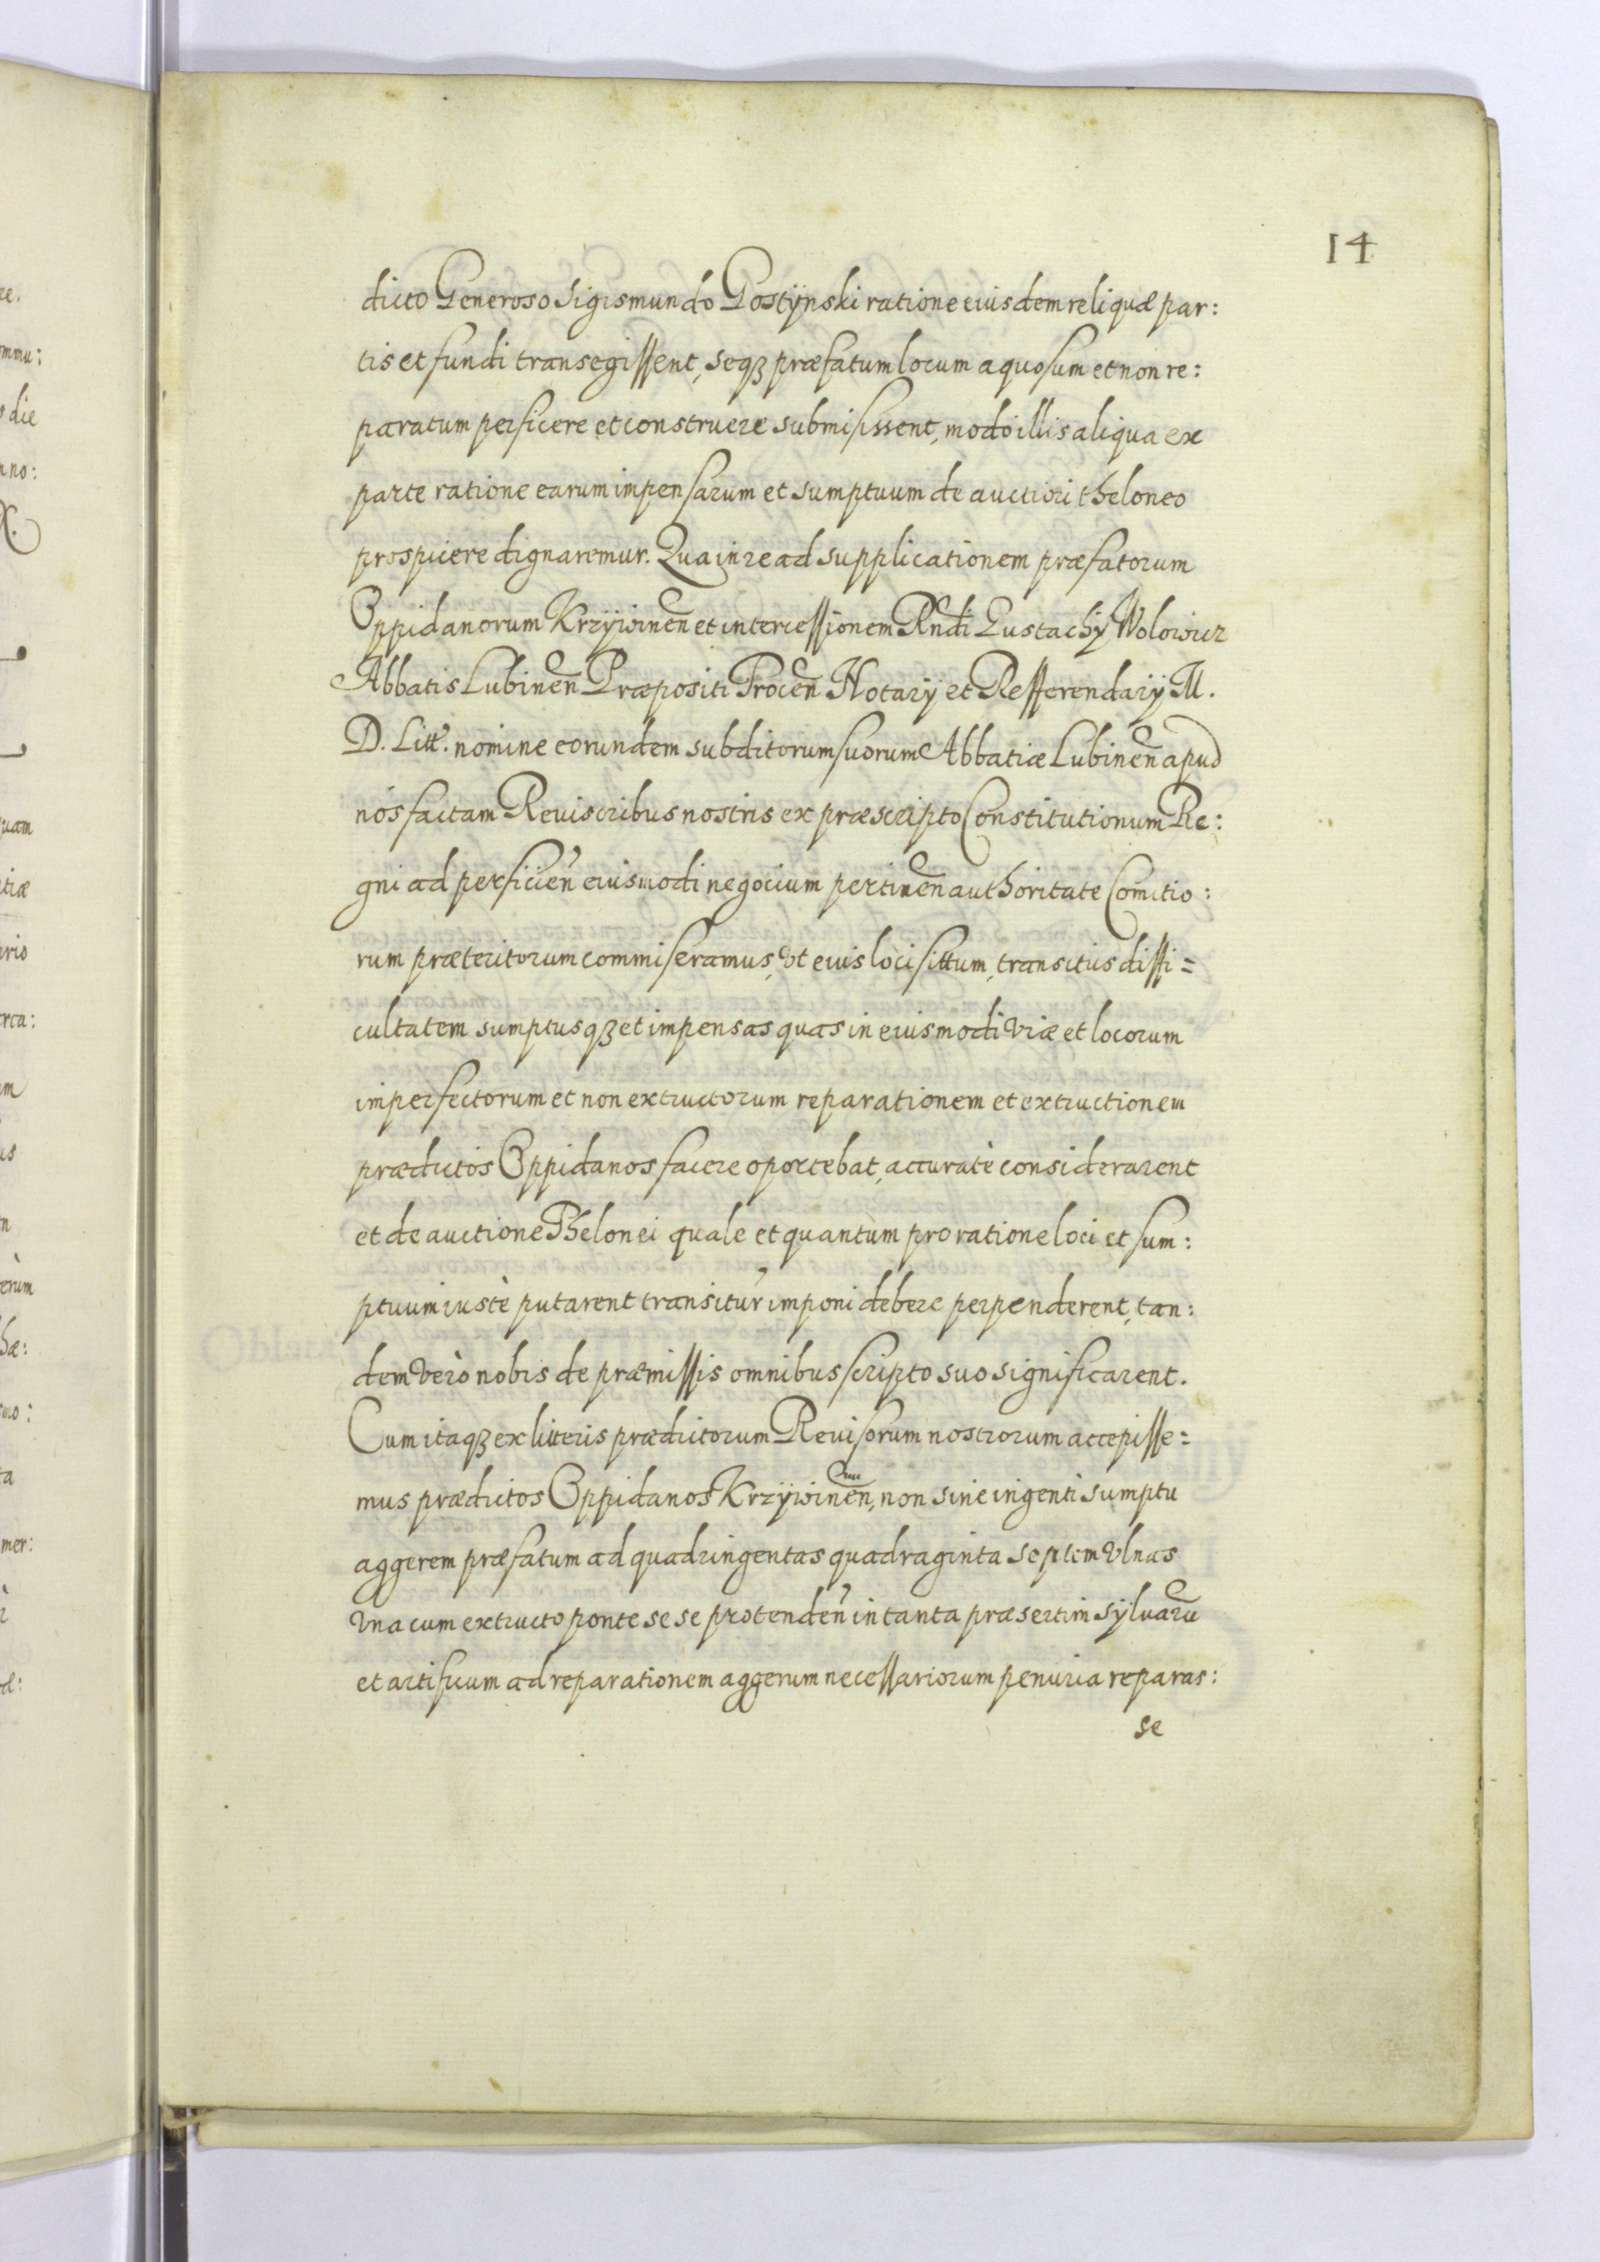 14
dicto Generoso Sigismundo Gostÿnski ratione eiusdem reliquæ par:
tis et fundi transegissent, seqꝫ præfatum locum aquosum et non re:
paratum perficere et construere submisissent, modo illis aliqua ex
parte ratione earum impensarum et sumptuum de auctiori theloneo
prospicere dignaremur. Qua in re ad supplicationem præfatorum
Oppidanorum Krzÿwinen̄ et intercessionem Rndi Eustachÿ Wolowicz
Abbatis Lubinen̄ Præpositi Trocen̄ Notarÿ et Refferendarÿ M.
D. Litt. nomine eorundem subditorum suorum Abbatiæ Lubinen̄ apud
nos factam Reuisoribus nostris ex præscripto Constitutionum Re:
gni ad perficien̄ eiusmodi negocium pertinen̄ authoritate Comitio:
rum præteritorum commiseramus, vt eius loci sittum, transitus diffi=
cultatem sumptusqꝫ et impensas quas in eiusmodi viæ et locorum
imperfectorum et non extructorum reparationem et extructionem
prædictos Oppidanos facere oportebat, accuratè considerarent
et de auctione Thelonei quale et quantum pro ratione loci et sum:
ptuum iustè putarent transitur̄ imponi debere perpenderent, tan:
dem verò nobis de præmissis omnibus scripto suo significarent.
Cum itaqꝫ ex litteris prædictorum Reuisorum nostrorum accepisse=
mus prædictos Oppidanos Krzÿwinen̄, non sine ingenti sumptu
aggerem præfatum ad quadringentas quadraginta septem vlnas
vna cum extructo ponte sese protenden̄ in tanta præsertim sÿluarū
et artificum ad reparationem aggerum necessariorum penuria reparas:
se